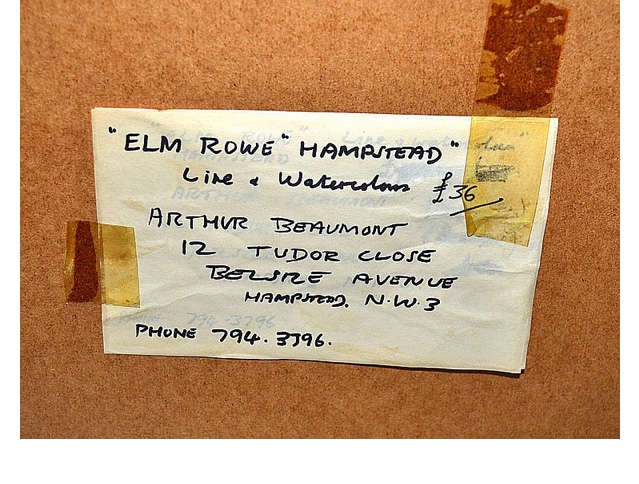 "ELM ROWE" HAMPSTEAD"
Line & Watercolour £36
ARTHUR BEAUMONT
12 TUDOR CLOSE
BELSIZE AVENUE
HAMPSTED. N.W.3
PHONE 794.3396.